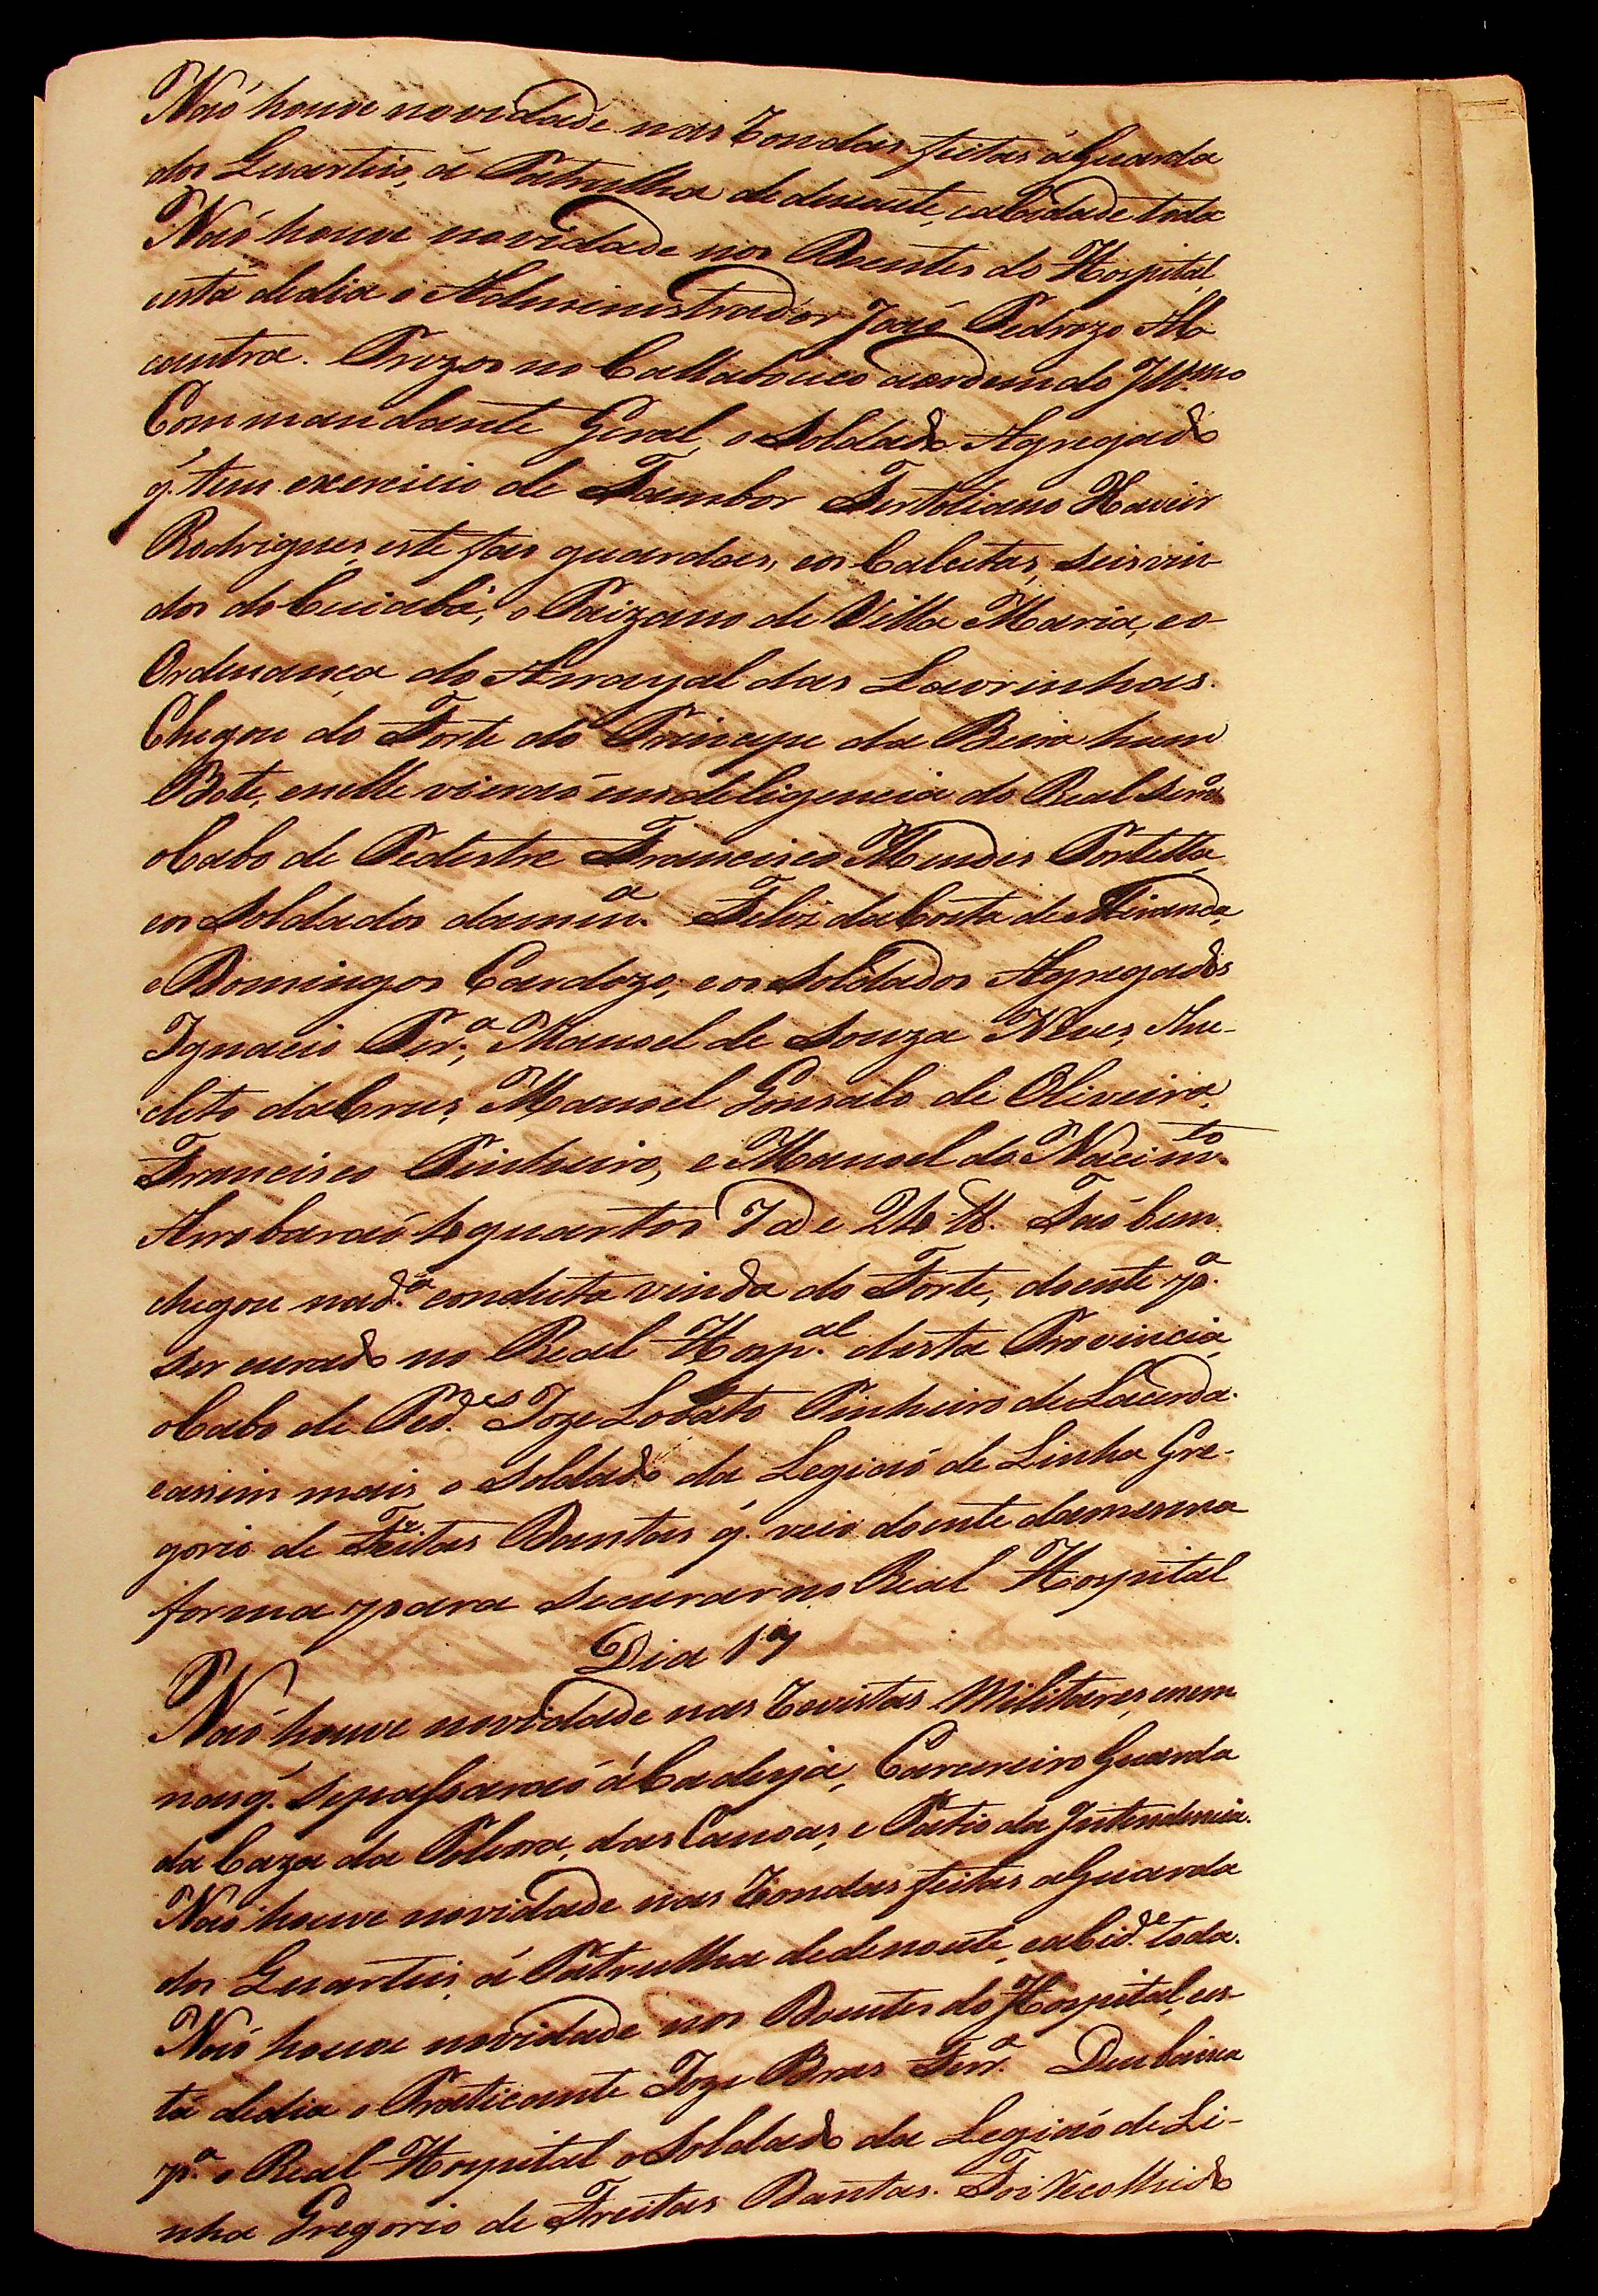 Não houve novidade nas Rondas feitas á Guarda
dos Quarteis, á Patrulha de denoute, e a Cidade toda
Não houve novidade nos Doentes do Hospital,
está dedia o Administrador João Pedrozo Al-
cantra. Prezos no Callabouco a ordem do Ill.mo
Commandante Geral, o Soldado Agregado
q. tem exercicio de Tambor Tertoliano Xavier
Rodrigues, este fas guardas, e os Calcetas, seis vin-
dos do Cuiabá, o Paizano de Villa Maria, eo-
Ordenança do Arrayal das Lavrinhas.
Chegou do Forte do Principe da Beira hum
Bote, enelle vierão em deligencia do Real Serv.o
o Cabo de Pedestre Francisco Mendes Portella,
e os Soldados damm.a Feliz da Costa de Miranda,
e Domingos Cardozo, e os Soldados Agregados
Ignacio Per.a, Manoel de Souza Neves, Ana-
cleto da Crus, Manoel Gonsalo de Oliveira,
Francisco Pinheiro, e Manoel do Nacim.to
Arrobarão 4 quartos 7 @ e 24 lb. Tão bem
chegou nad.a conduta vinda do Forte, doente p.a
ser curado no Real Hosp.al desta Provincia,
o Cabo de Ped.es Joze Lobato Pinheiro de Lacerda.
e assim mais o Soldado da Legião de Linha Gre-
gorio de Freitas Dantas q. veio doente damesma
forma para se curar no Real Hospital
Dia 17
Não houve novidade nas Revistas Militares, enem
nas q. sepassarão á Cadeya, Carcereiro Guarda
da Caza da Polvora, das Canoas, e Patio da Intendencia.
Não houve novidade nas Rondas feitas a Guarda
dos Quarteis, á Patrulha dedenoute, ea Cid.e toda.
Não houve novidade nos Doentes do Hospital, es-
tá dedia o Praticante Joze Bras Ferr.a Deu baixa
p.a o Real Hospital o Soldado da Legião de Li-
nha Gregorio de Freitas Dantas. Foi Recolhido